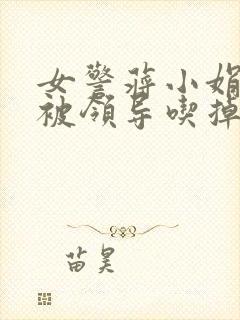 女警蒋小娟
被领导喫掉
苗昊